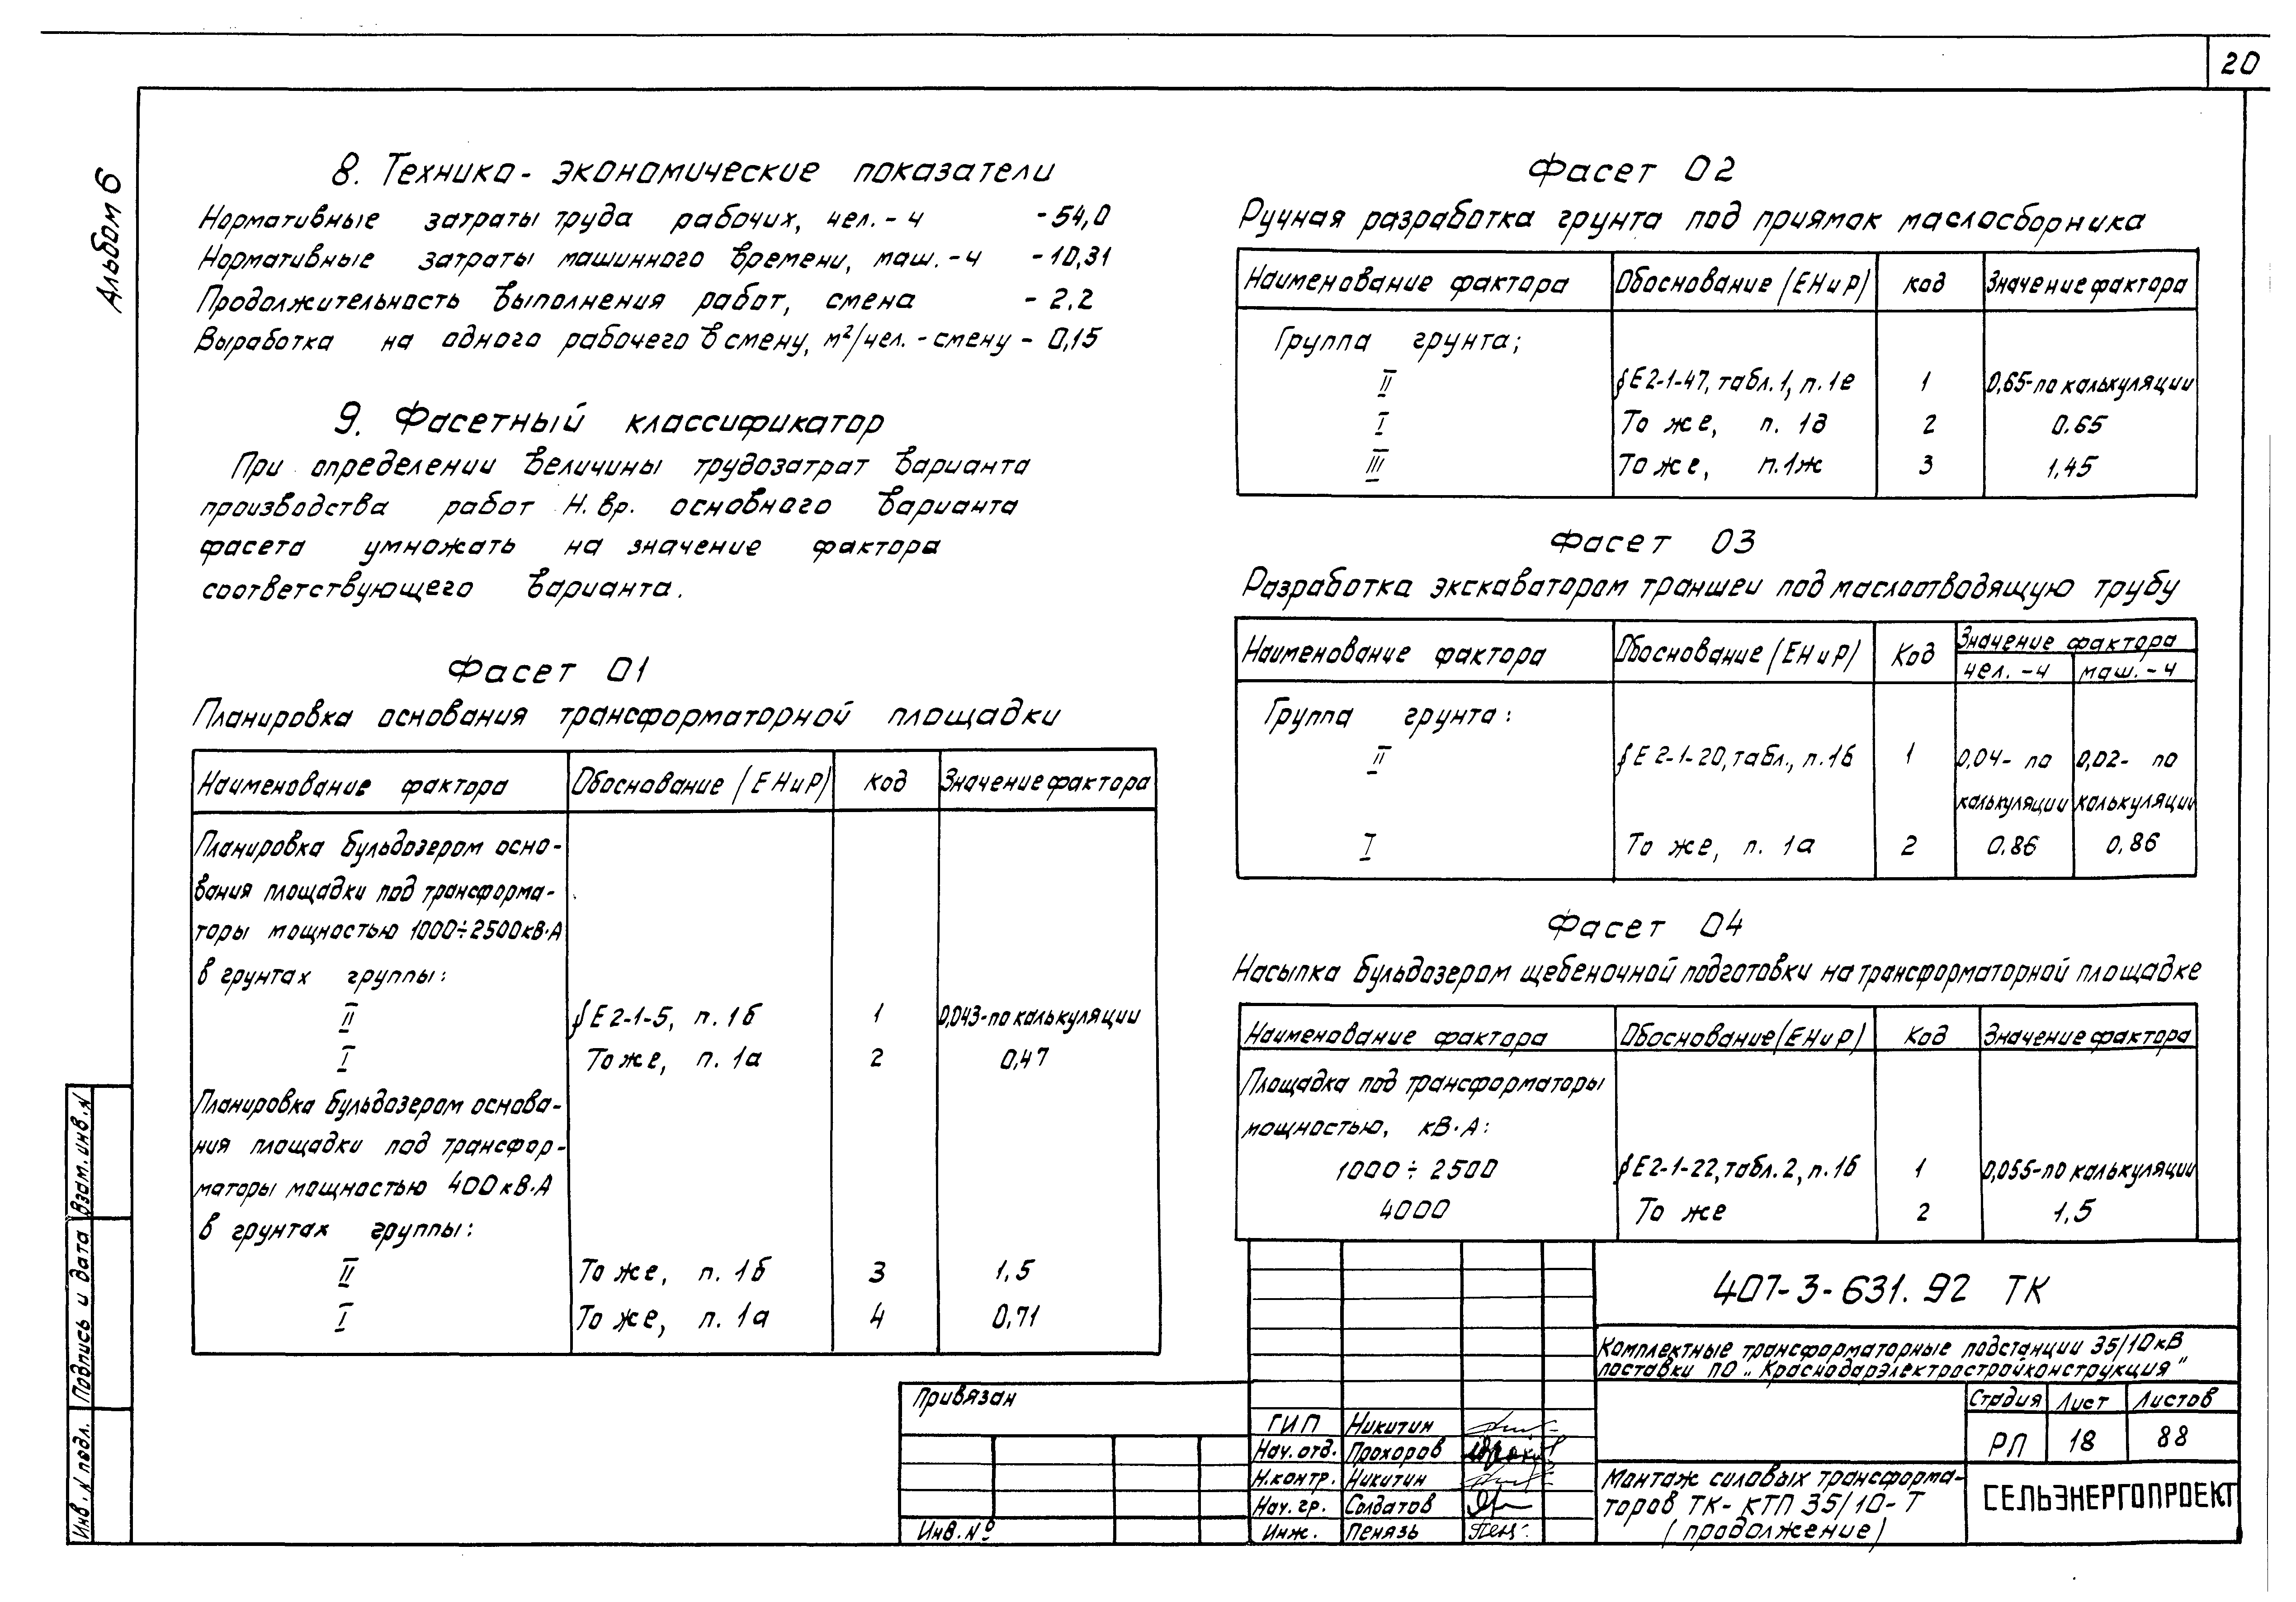 20
Альбом 6
8. Технико-экономические показатели
Нормативные затраты труда рабочих, чел.-ч -54,0
Нормативные затраты машинного времени, маш.-ч -10,31
Продолжительность выполнения работ, смена - 2.2
Выработка на одного рабочего в смену, м²/чел.-смену - 0,15
9. Фасетный классификатор
При определении величины трудозатрат варианта
производства работ Н.вр. основного варианта
фасета умножать на значение фактора
соответствующего варианта.
Фасет 01
Планировка основания трансформаторной площадки
Наименование фактора Обоснование (ЕНиР) код Значение фактора
Планировка бульдозером осно-
вания площадки под трансформа-
торы мощностью 1000÷2500кВ·А
в грунтах группы:
II § Е2-1-5, п. 1б 1 0,043-по калькуляции
I То же, п. 1а 2 0,47
Планировка бульдозером основа-
ния площадки под трансфор-
маторы мощностью 400кВ·А
в грунтах группы:
II То же, п. 1б 3 1,5
I То же, п. 1а 4 0,71
Фасет 02
Ручная разработка грунта под приямок маслосборника
Наименование фактора Обоснование (ЕНиР) код Значение фактора
Группа грунта;
II § Е2-1-47, табл.1, п.1е 1 0,65-по калькуляции
I То же, п. 1д 2 0.65
III То же, п.1ж 3 1,45
Фасет 03
Разработка экскаватором траншеи под маслоотводящую трубу
Наименование фактора Обоснование (ЕНиР) Код Значение фактора
чел.-ч маш.-ч
Группа грунта:
II § Е 2-1-20, табл., п.1б 1 0,04- по 0,02- по
калькуляции калькуляции
I То же, п. 1а 2 0,86 0,86
Фасет 04
Насыпка бульдозером щебеночной подготовки на трансформаторной площадке
Наименование фактора Обоснование(ЕНиР) Код Значение фактора
Площадка под трансформаторы
мощностью, кВ·А:
1000 ÷ 2500 § Е2-1-22, табл.2, п.1б 1 0,055-по калькуляции
4000 То же 2 1,5
407-3-631.92 ТК
Комплектные трансформаторные подстанции 35/10кВ
поставки ПО „Краснодарэлектростройконструкция"
Стадия Лист Листов
РП 18 88
Монтаж силовых трансформа-
торов ТК-КТП 35/10-Т
(продолжение)
СЕЛЬЭНЕРГОПРОЕКТ
ГИП Никитин
Нач. отд. Прохоров
Н.контр. Никитин
Нач. гр. Солдатов
Инж. Пенязь
Привязан
Инв. №
Взам. инв. N
Подпись и дата
Инв. N подл.